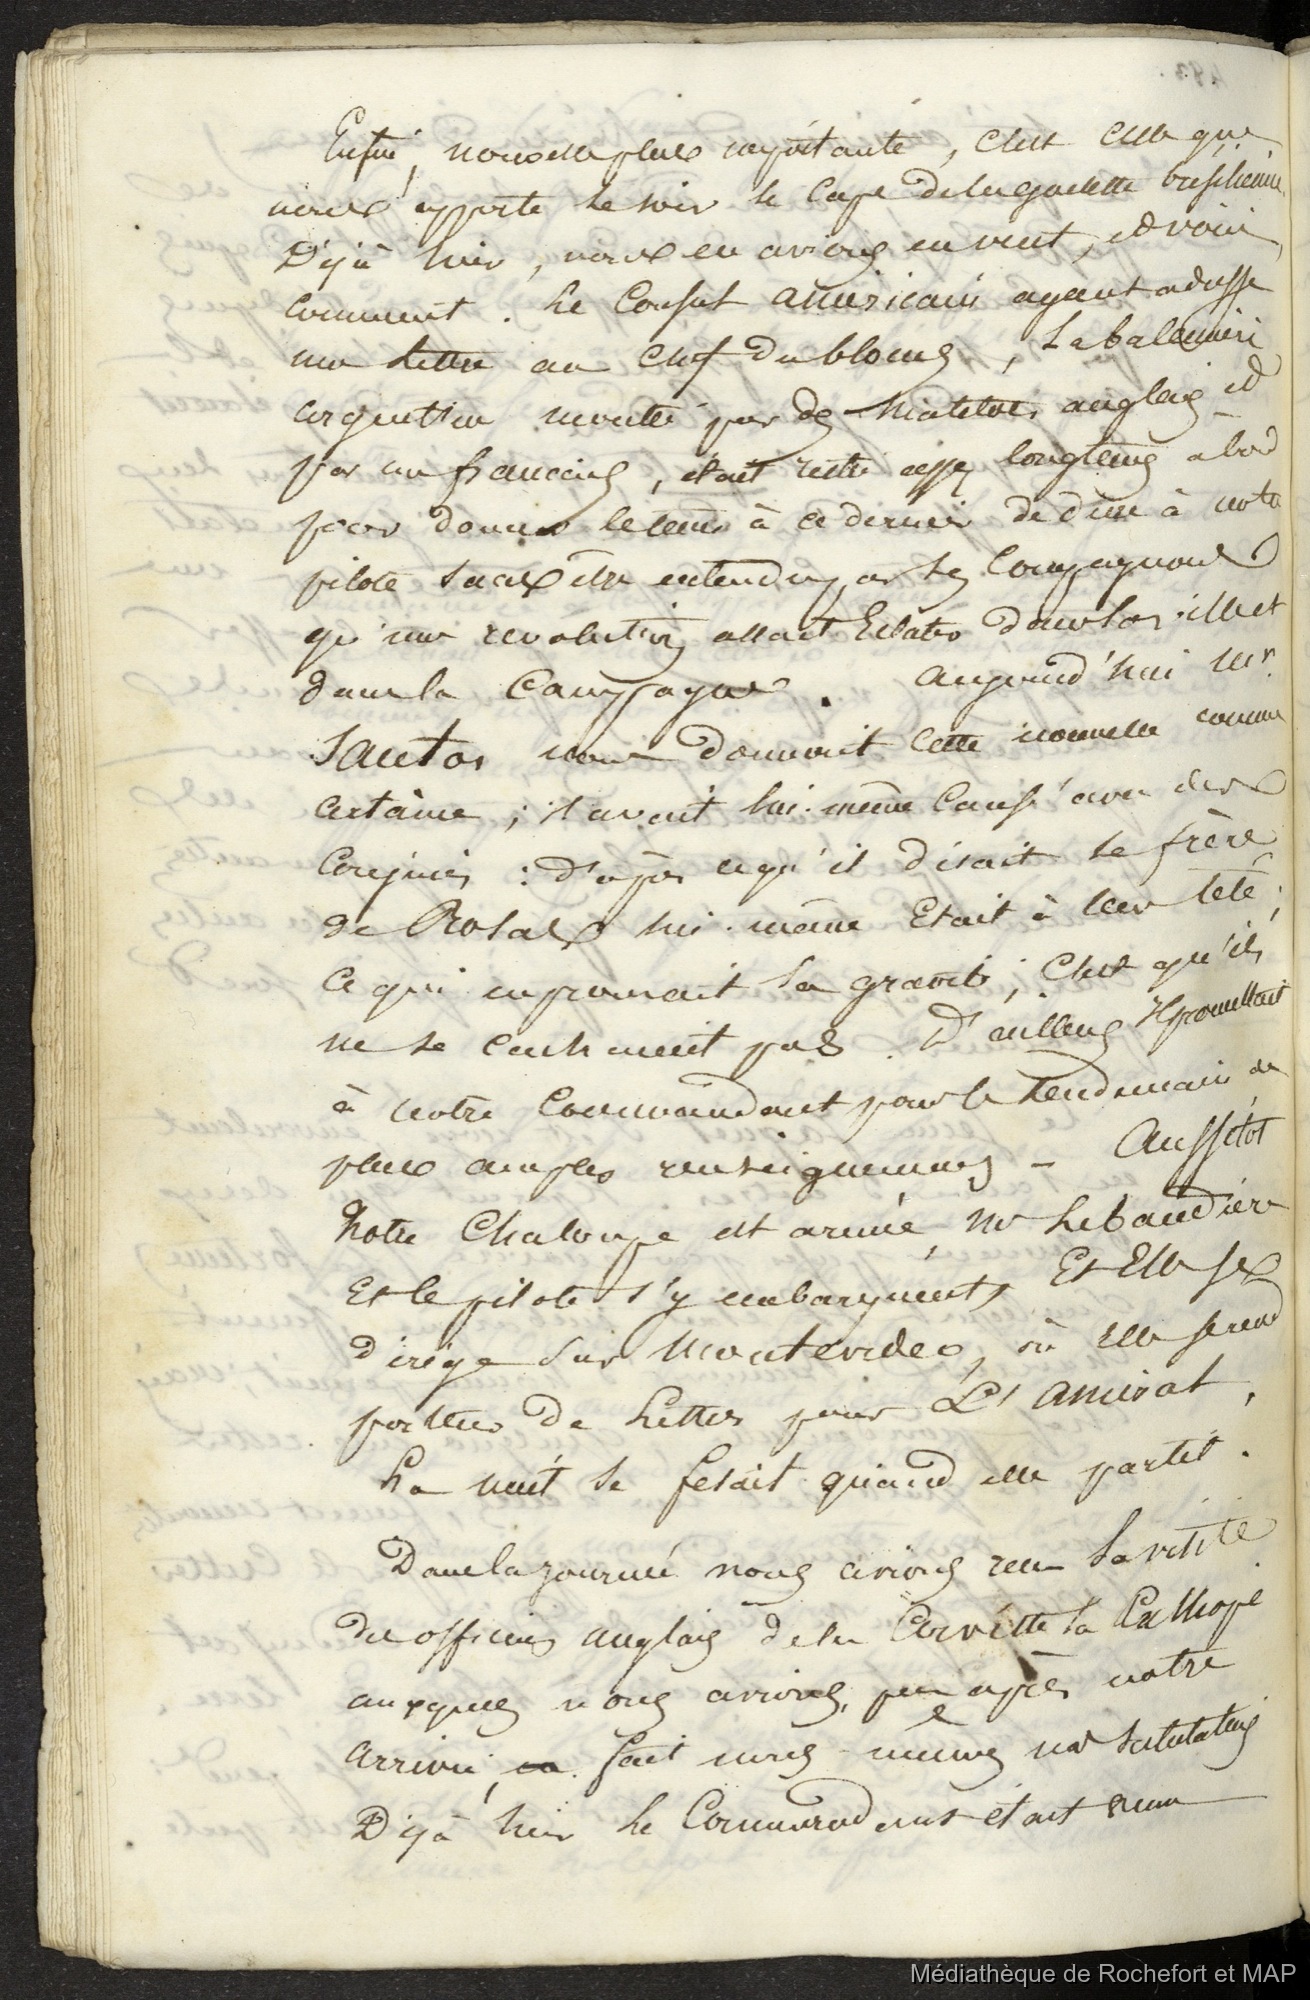 Enfin, nouvelle plus importante, c'est celle que
nous apporte le soir le Cape de la goelette bresilienne
Déjà hier, nous en avions eu vent, et voici
comment. Le Consul américain ayant adressé
une lettre au Chef du blocus, la baleinière
argentine montée par des matelots anglais et
par un français, était restée assez longtems abord
pour donner le tems à ce dernier de dire à notre
pilote sans être entendu par ses Compagnons
qu'une revolution allait Eclater dans la ville et
dans la Campagne. Aujourd'hui Mr.
Santos nous donnait cette nouvelle comme
certaine; il avait lui-même causé avec des
Conjurés: d'après ce qu'il disait le frère
de Rosas lui-même Etait à leur tête;
ce qui en prouvait la gravité, c'est qu'ils
ne se cachaient pas. D'ailleurs il promettait
à notre Commandant pour le lendemain de
plus amples renseignemens – Aussitôt
notre Chaloupe est armée, Mr Lebaudière
Et le pilote s'y embarquent, Et Elle se
dirige sur Montevideo, où elle se rend
porteur de lettres pour L'amiral,
La nuit se fesait quand elle partit.
Dans la journée nous avions reçu la visite
des officiers anglais de la Corvette la Calliope
auxquels nous avions, peu après notre
arrivée, fait nous-mêmes nos salutations
Déjà hier le Commandant était venu
Médiathèque de Rochefort et MAP